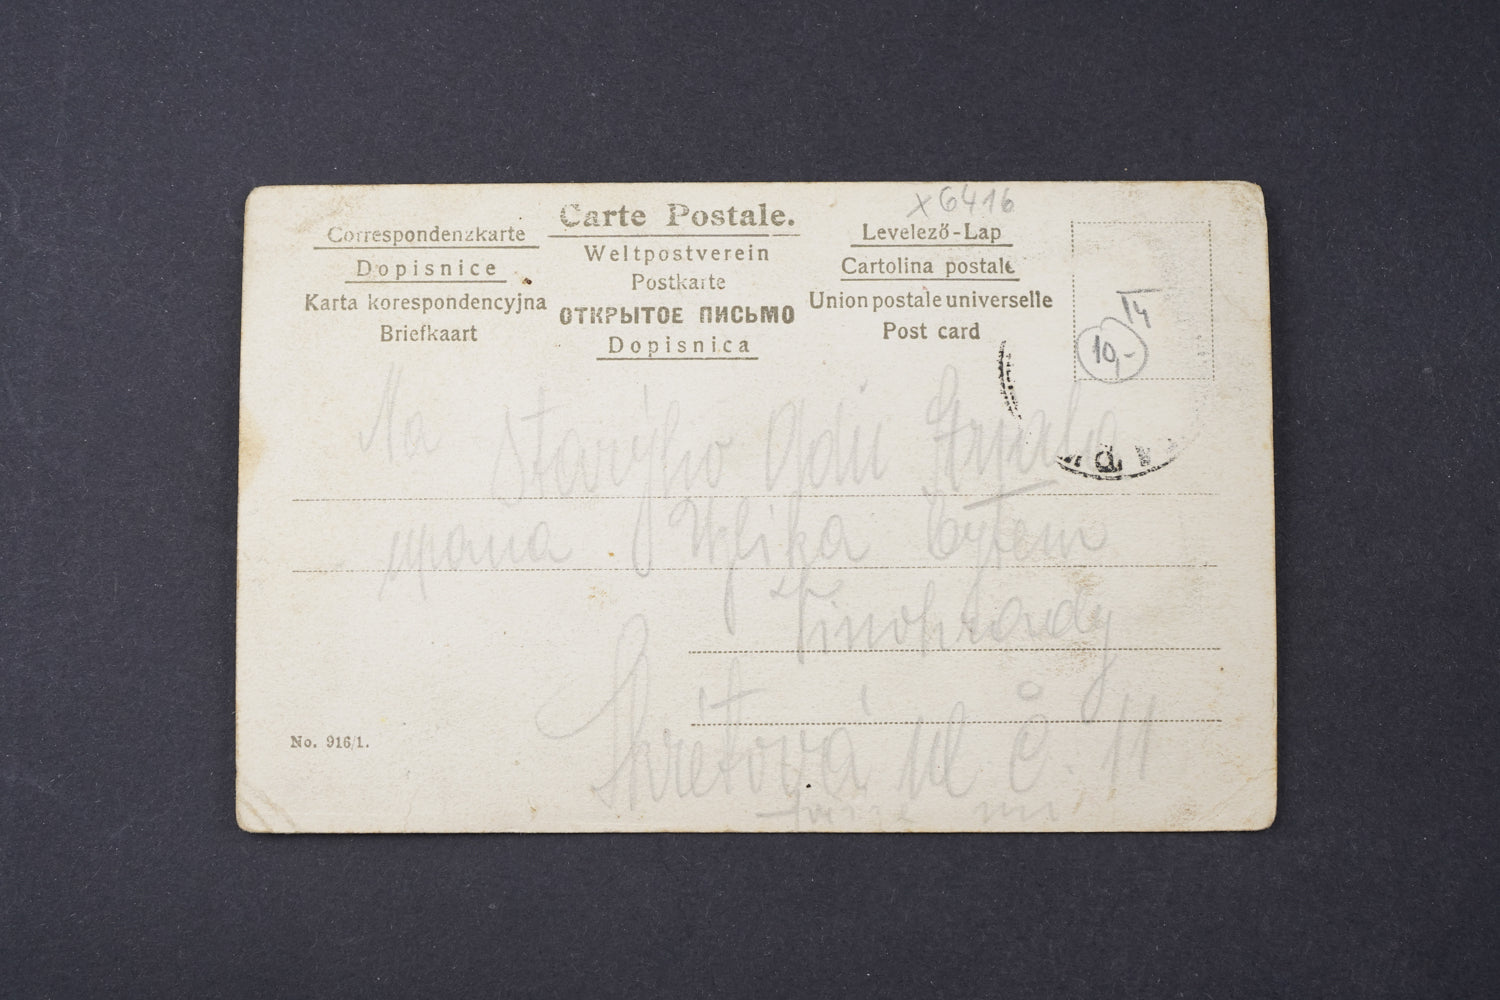 x 6416
Carte Postale.
Correspondenzkarte
Dopisnice
Karta korespondencyjna
Briefkaart
Weltpostverein
Postkarte
ОТКРЫТОЕ ПИСЬМО
Dopisnica
Levelező-Lap
Cartolina postale
Union postale universelle
Post card
14
10,-
Na starýho
pana bytem
Vinohrady
Skrétová ul č. 11
No. 916/1.